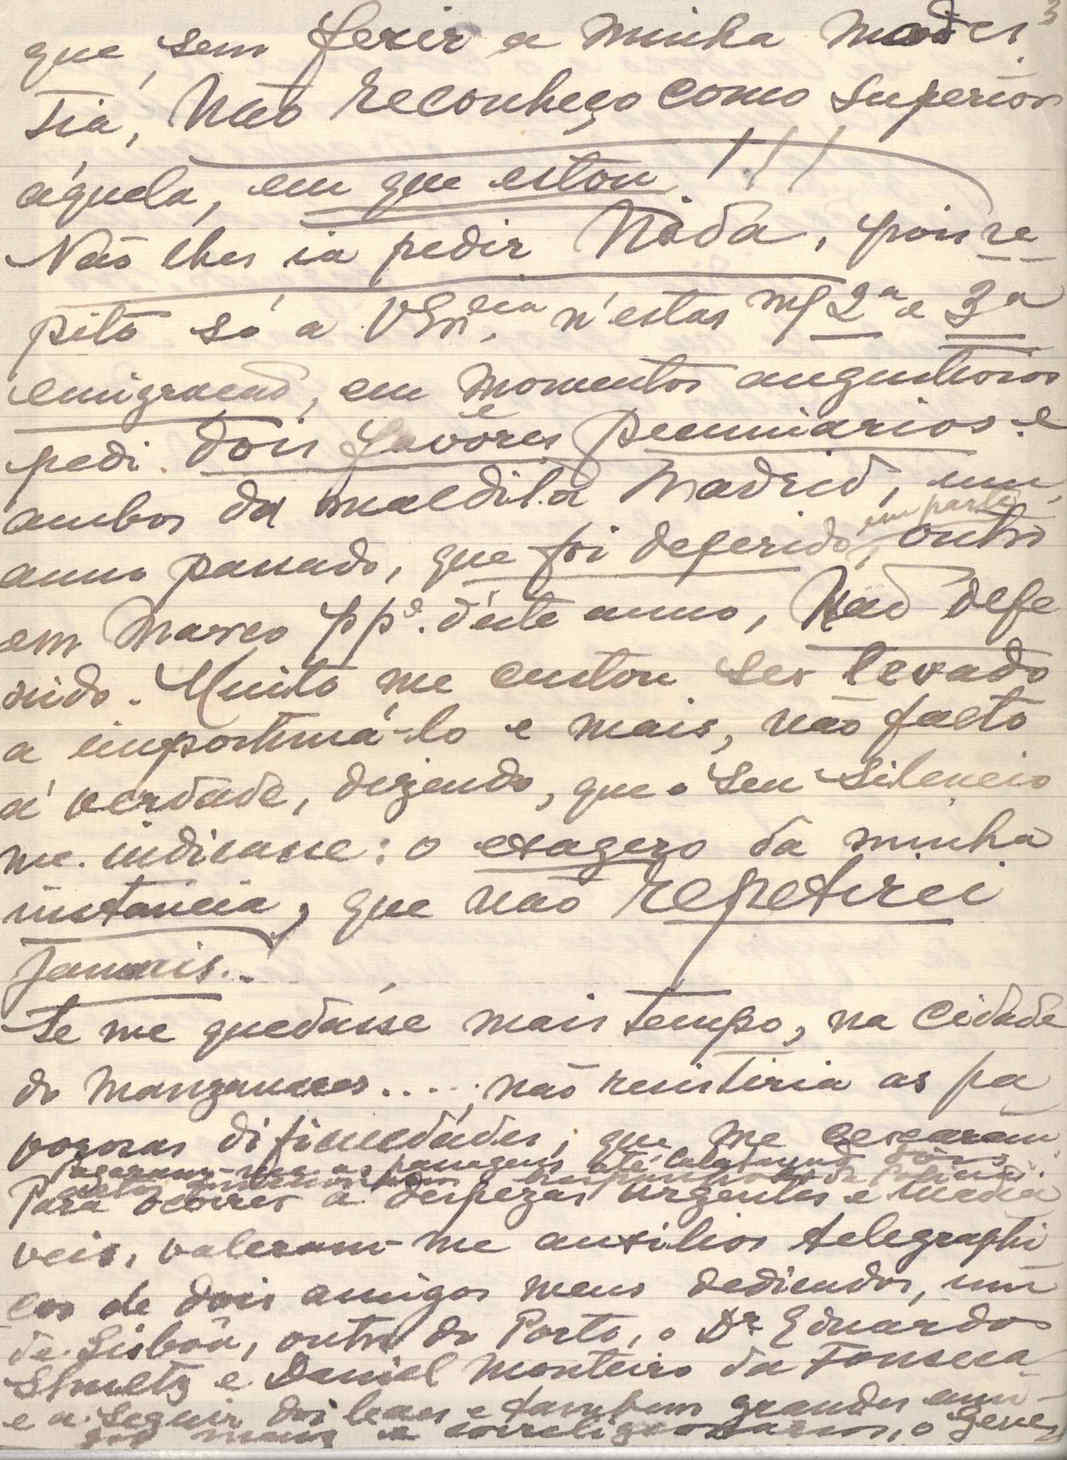 3
que, sem ferir a minha modes
tia, Não reconheço como superior
áquela, em que estou!!!
Não lhes ia pedir Nada, pois re
pito só a VExcia, n'estas 2ª e 3ª
emigração, em momentos angustiosos
pedi dois favôres pecuniarios e
ambos da maldita Madrid, um,
anno passado, que foi deferido, em parte, outro
em Março pp. d'este anno, Não defe
rido. Muito me custou ser levado
a importuná-lo e mais, não falto
á verdade, dizendo, que o seu silencio
me indicasse: o exagero da minha
instancia, que não repetirei
jamais..
Se me quedásse mais tempo, na cidade
do Manzanares.... não resistiria as pa
vorosas dificuldades, que me cercaram
pagaram-me as passagens até
Para ocorrer a despezas urgentes e inadia
veis, valeram-me auxilios telegraphi
cos de dois amigos meus dedicados, um
de Lisbôa, outro do Porto, o Dr. Eduardo
e Daniel Monteiro da Fonseca
e a seguir dois leaes e tambem grandes ami-
gos meus e correligionarios, o